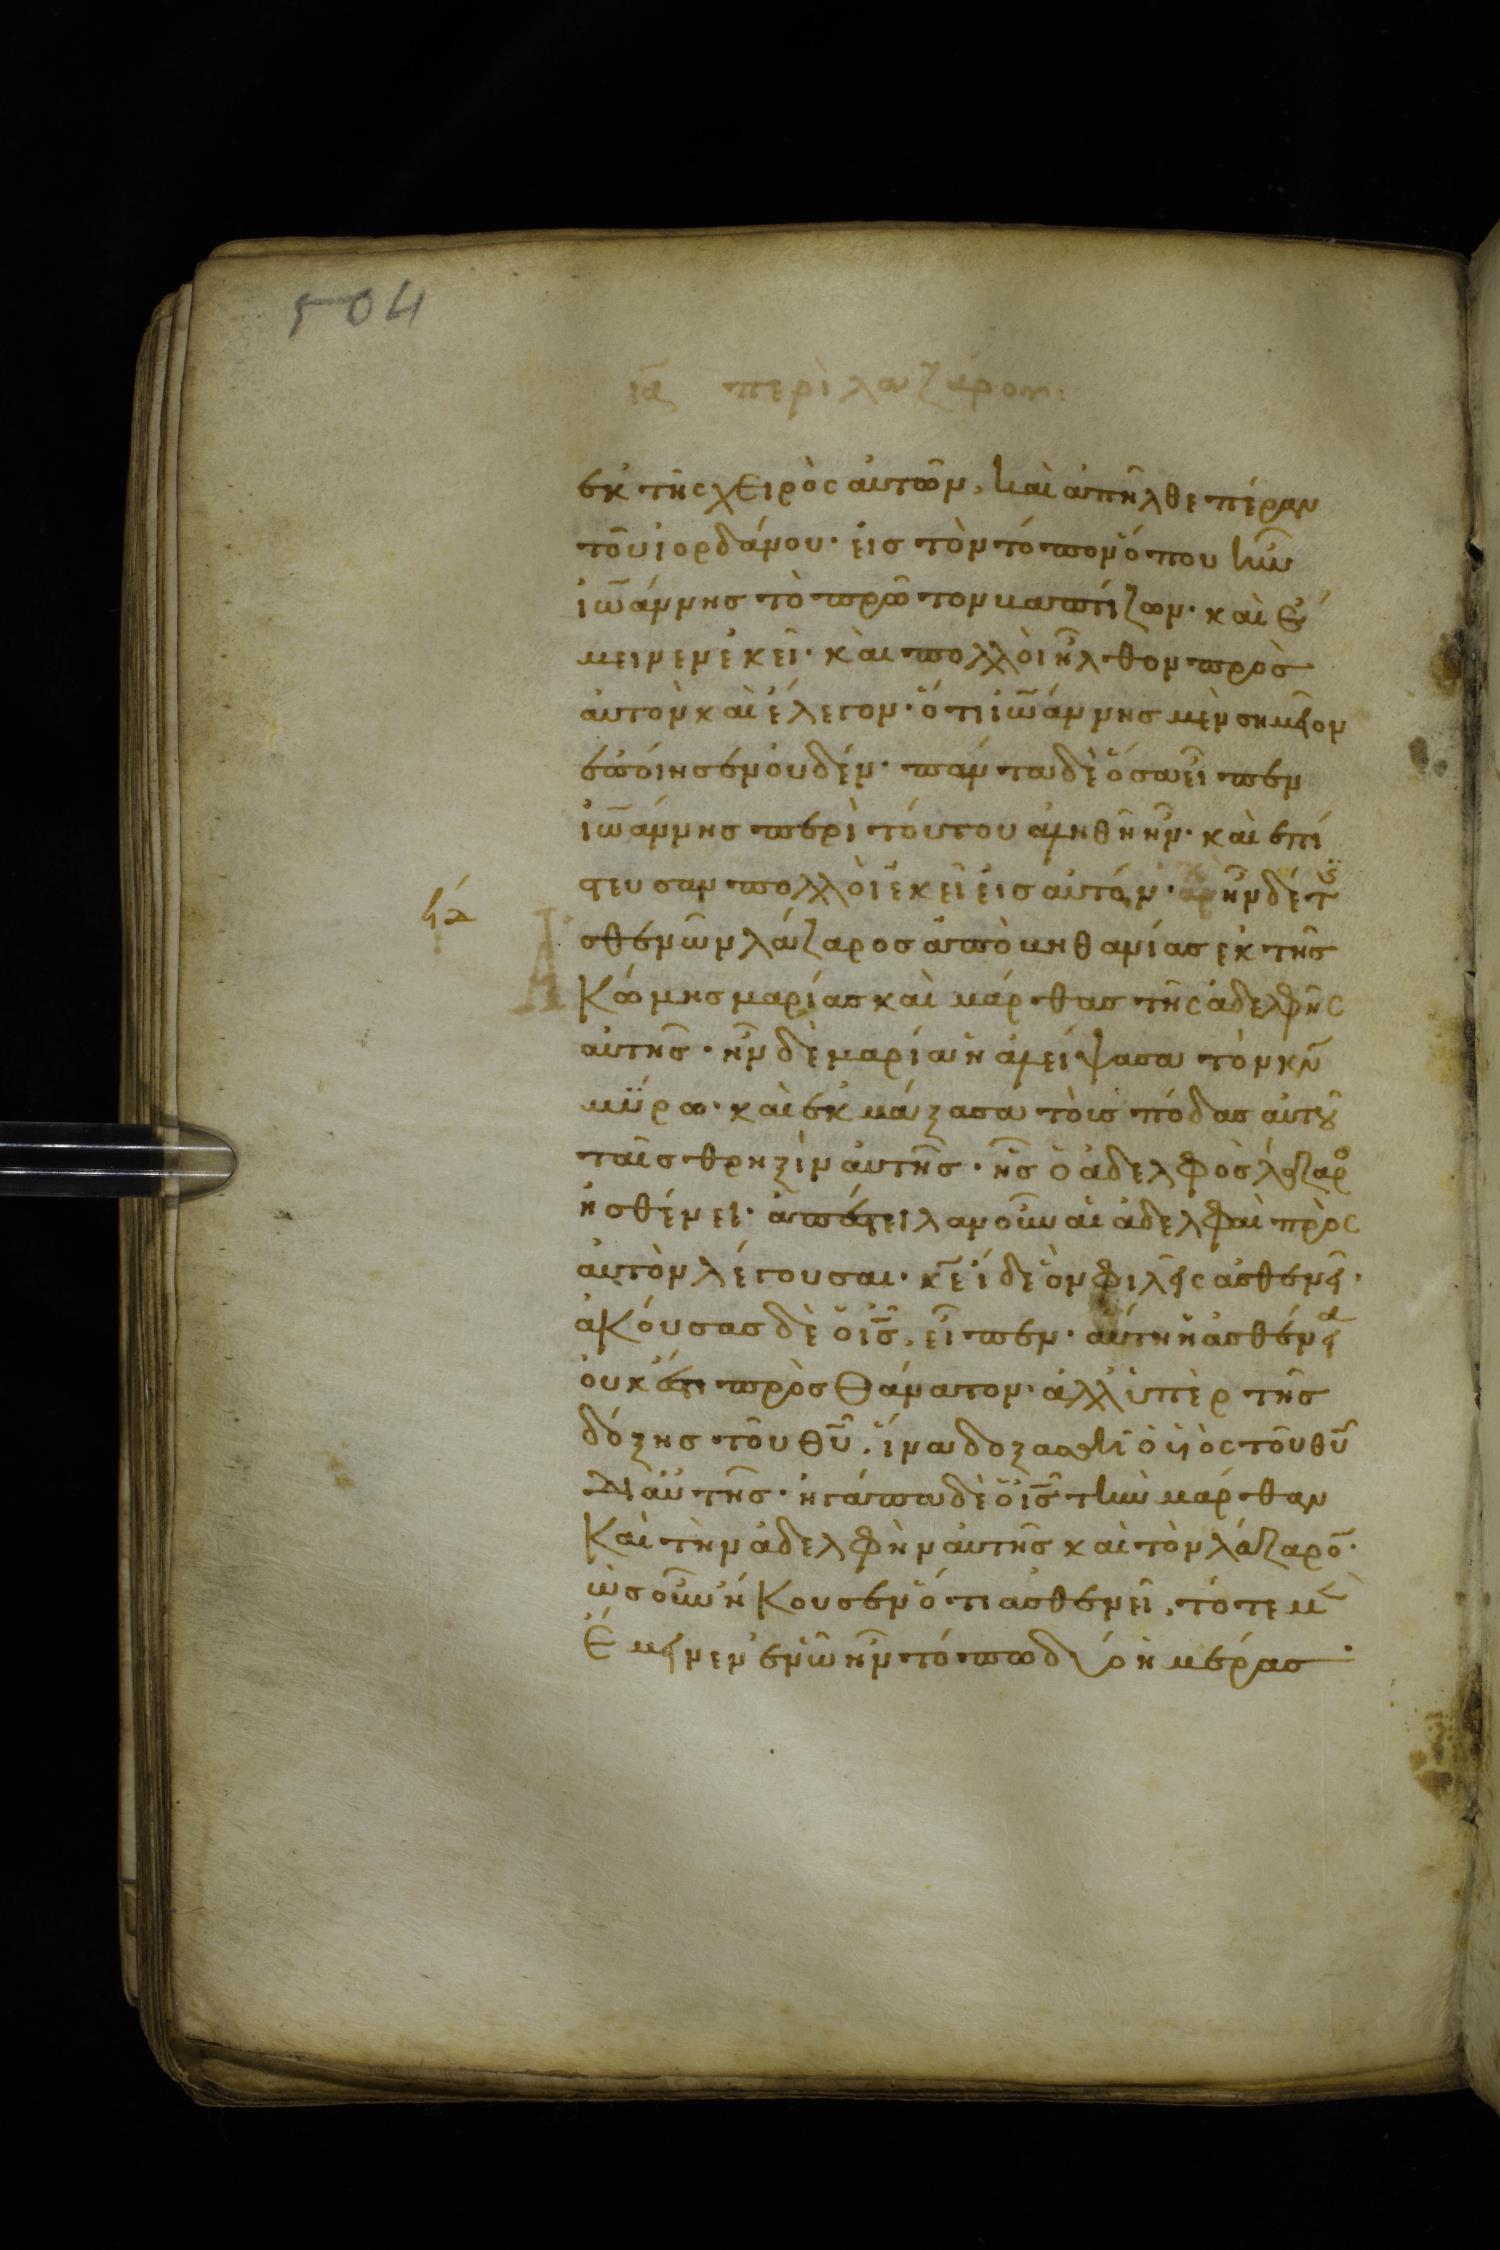 504
ια περὶ λαζάρου:
ἐκ τῆς χειρὸς αὐτῶν, καὶ ἀπῆλθε πέραν
τοῦ ἰορδάνου· εἰς τὸν τόπον ὅπου ἦν
ἰω̅άννης τὸ πρῶτον βαπτίζων· καὶ ἔ
μεινεν ἐκεῖ· καὶ πολλοὶ ἦλθον πρὸς
αὐτὸν καὶ ἔλεγον· ὅτι ἰω̅άννης μὲν σημεῖον
ἐποίησεν οὐδέν· πάντα δὲ ὅσα εἶπεν
ἰω̅άννης περὶ τούτου ἀληθῆ ἦν· καὶ ἐπί
στευσαν πολλοὶ ἐκεῖ εἰς αὐτόν· ἦν δέ τις
ἀ
σθενῶν λάζαρος ἀπὸ βηθανίας ἐκ τῆς
κώμης μαρίας καὶ μάρθας τῆς ἀδελφῆς
αὐτῆς· ἦν δὲ μαρία ἡ ἀλείψασα τὸν κν̅
μύρω· καὶ ἐκμάξασα τοὺς πόδας αὐτοῦ
ταῖς θριξὶν αὐτῆς· ἧς ὁ ἀδελφὸς λάζαρο
ἠσθένει· ἀπέστειλαν οὖν αἱ ἀδελφαὶ πρὸς
αὐτὸν λέγουσαι· κε̅ ἴδε ὃν φιλεῖς ἀσθενεῖ·
ἀκούσας δὲ ὁ ις̅, εἶπεν· αὕτη ἡ ἀσθένεια
οὐκ ἔστι πρὸς θάνατον· ἀλλ' ὑπὲρ τῆς
δόξης τοῦ θυ̅, ἵνα δοξασθῆ ὁ υἱὸς τοῦ θυ̅
δι αὐτῆς· ἠγάπα δὲ ὁ ις̅ τὴν μάρθαν
καὶ τὴν ἀδελφὴν αὐτῆς καὶ τὸν λάζαρο̅·
ὡς οὖν ἤκουσεν ὅτι ἀσθενεῖ, τότε μὲ
ἔμεινεν ἐν ὧ ἦν τόπω δύο ἡμέρας·